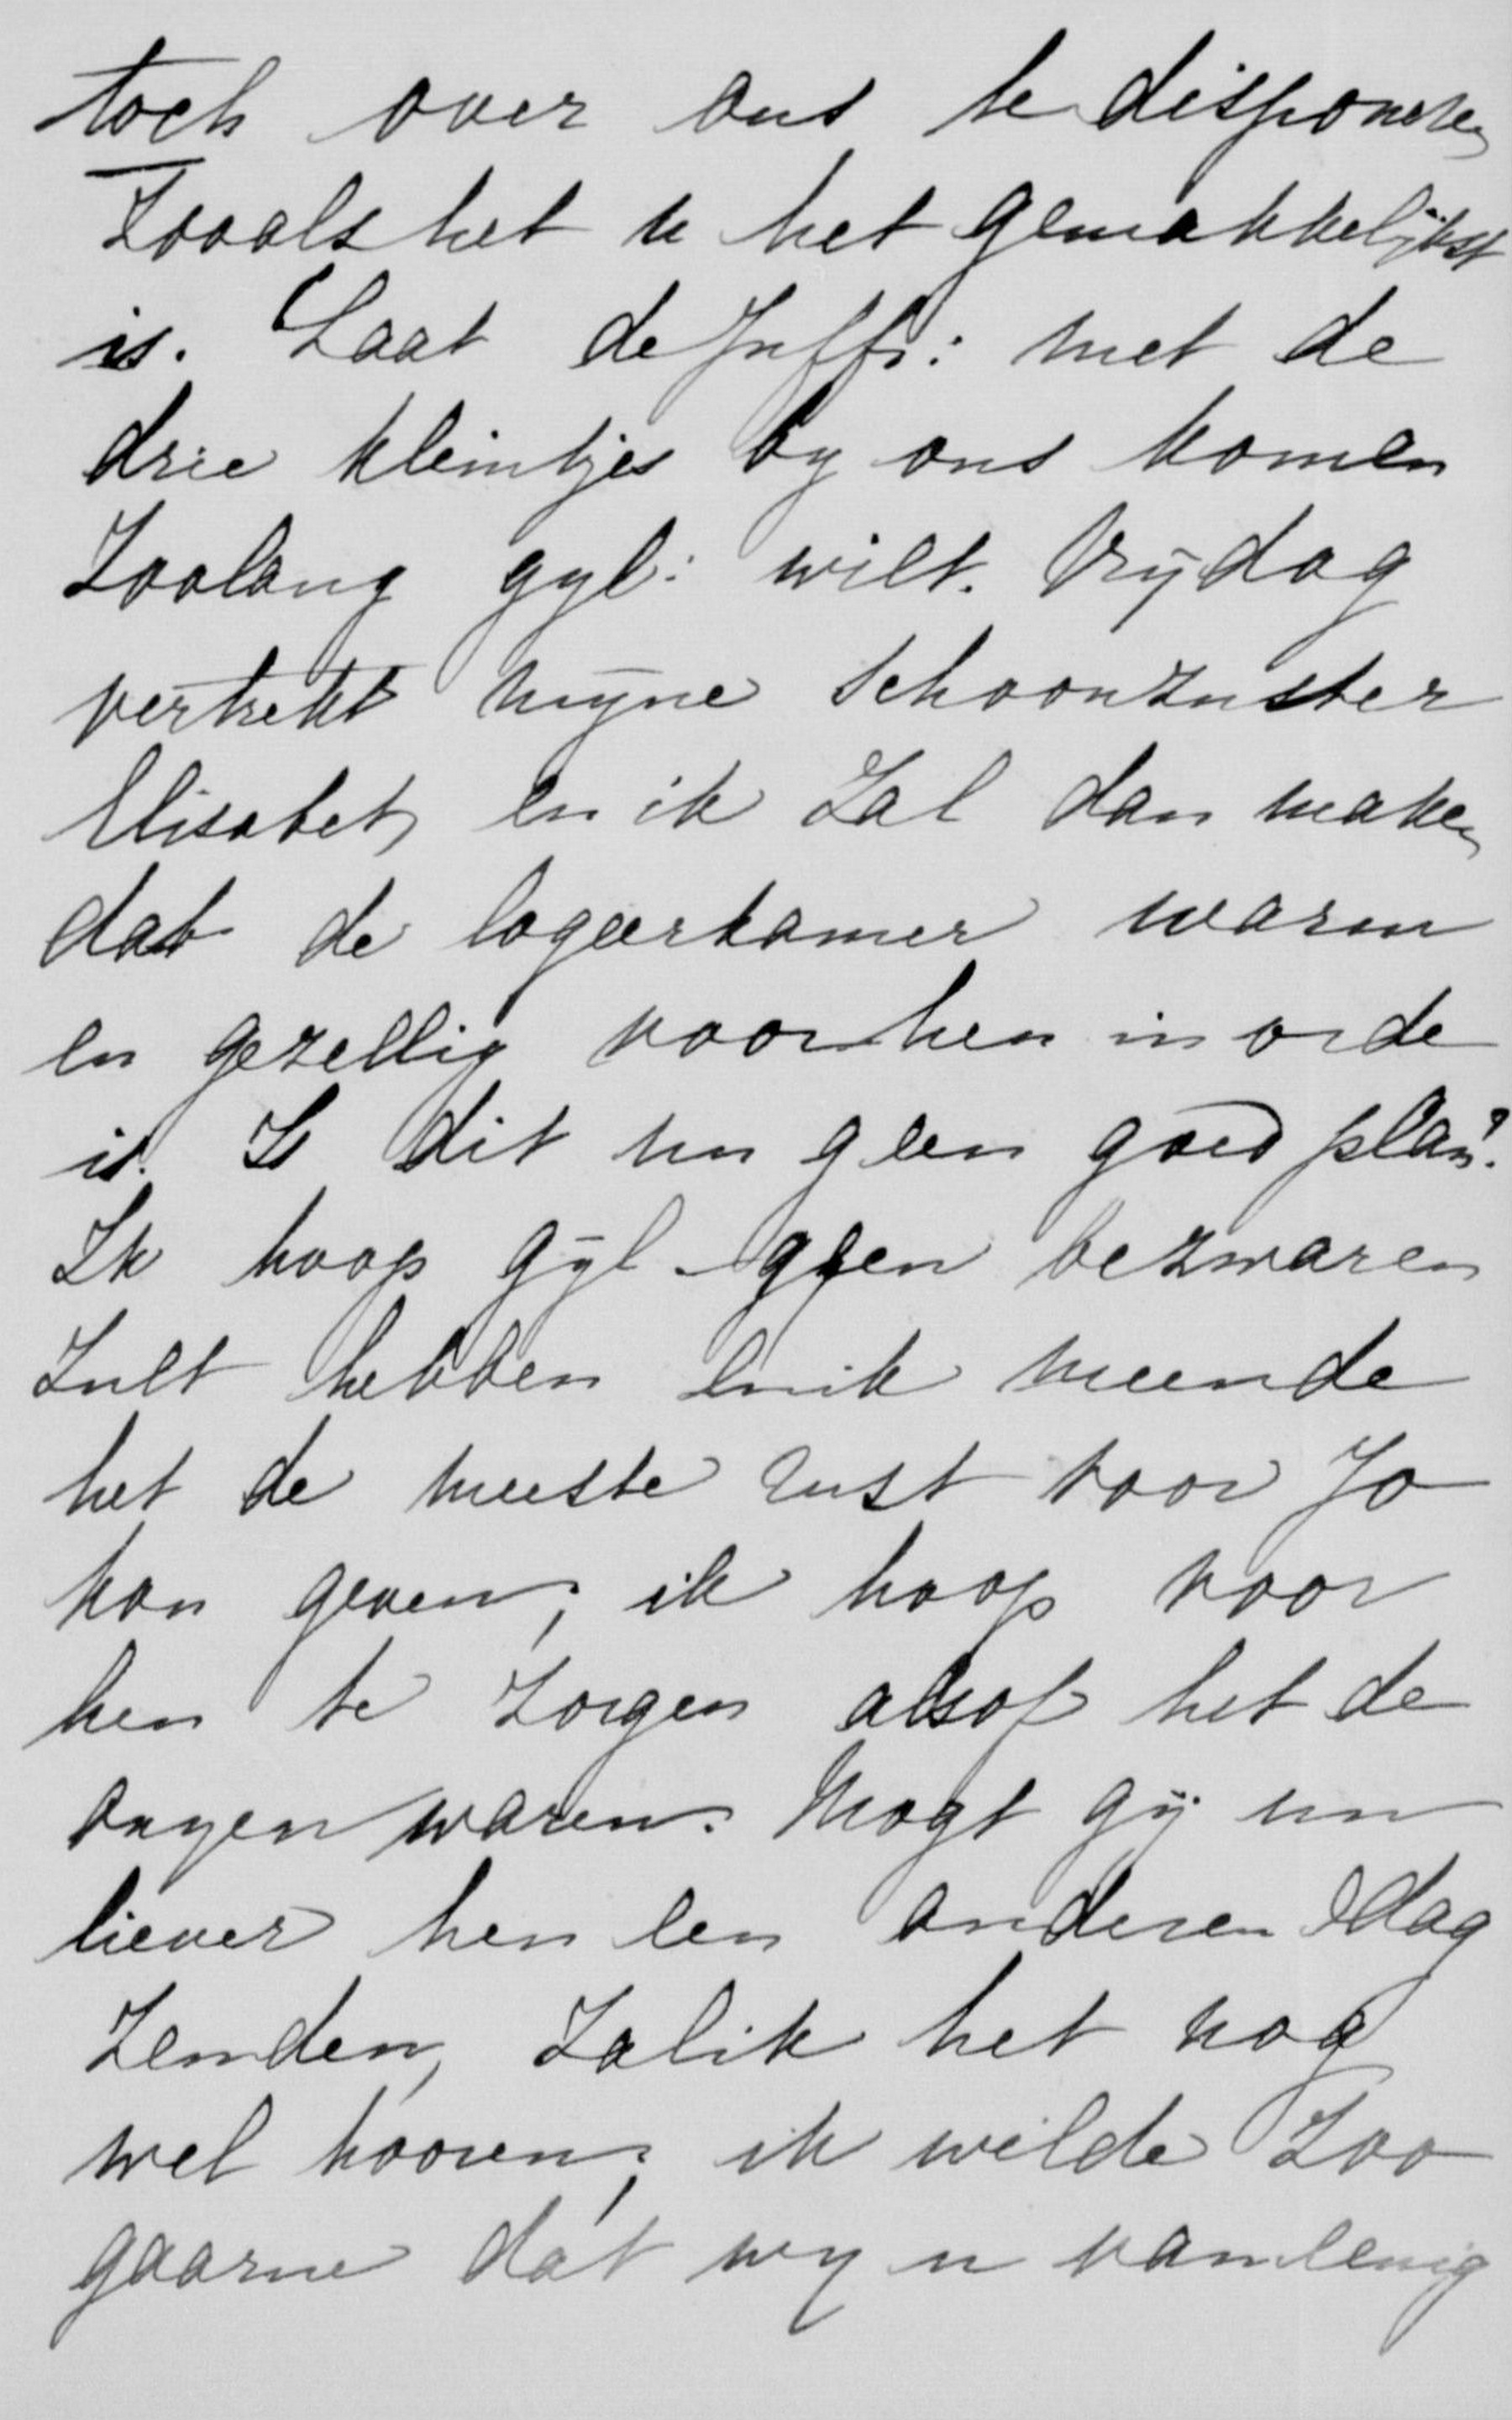 toch over ons te disponeren
Zooals het u het gemakkelijkst
is. Laat de Juffr: met de
drie kleintjes by ons komen
Zoolang gyl: wilt. Vrijdag
vertrekt mijne Schoonzuster
Elisabeth en ik Zal dan maken
dat de logeerkamer warm
en gezellig voor hen in orde
is. Is dit nu geen goed plan?
Ik hoop gijl. geen bezwaren
Zult hebben en ik meende
het de meeste rust voor Jo
kon geven; ik hoop voor
hen te Zorgen alsof het de
onzen waren. Mogt gij nu
liever hen een anderen dag
Zenden, Zal ik het nog
wel hooren; ik wilde Zoo
gaarne dat wy u van eenig